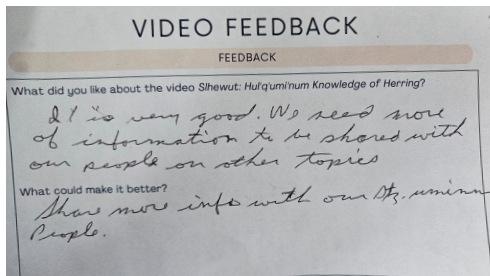 VIDEO FEEDBACK
FEEDBACK
What did you like about the video Slhewut: Hul'q'umi'num Knowledge of Herring?
It is very good. We need more
of information to be shared with
our people on other topics
What could make it better?
Share more info with our Stz'uminu
People.